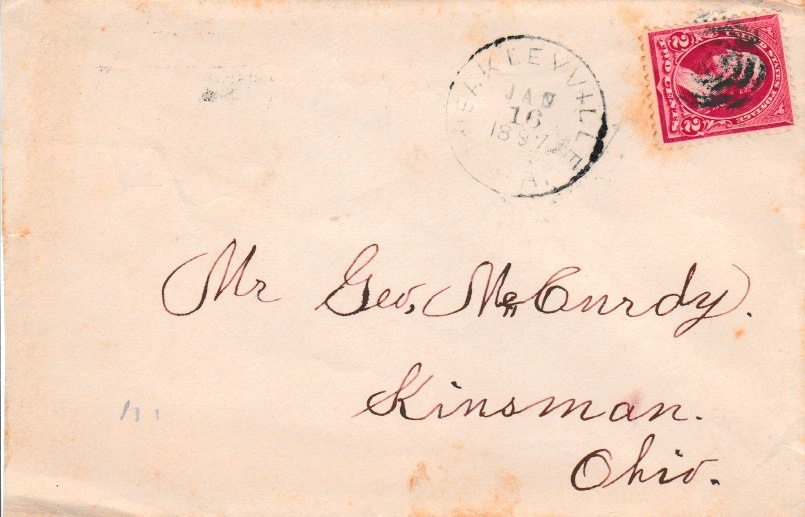 EAKLEYVILLE
JAN
16
1897
PA.
UNITED STATES POSTAGE
2 TWO CENTS 2
Mr Geo, McCurdy.
Kinsman.
Ohio.